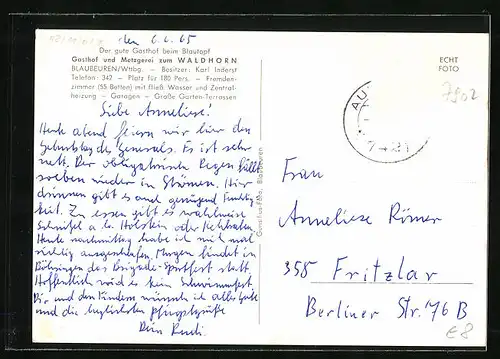 den 6.6.65
Der gute Gasthof beim Blautopf
Gasthof und Metzgerei zum WALDHORN
BLAUBEUREN/Wttbg. – Besitzer: Karl Inderst
Telefon: 342 – Platz für 180 Pers. – Fremden-
zimmer (55 Betten) mit fließ. Wasser und Zentral-
heizung – Garagen – Große Garten-Terrassen
ECHT
FOTO
7902
Liebe Anneliese.
Heute abend feiern wir hier den
Geburtstag des Generals. Es ist sehr
nett. Der obligatorische Regen fällt
soeben wieder in Strömen. Hier
drinnen gibt es auch genügend Feuchtig
keit. Zu essen gibt es wahlweise
Schnitzel a la Holstein oder Kalbsbraten
Heute nachmittag habe ich mich mal
richtig ausgeschlafen. Morgen findet in
Böhringen das Brigade-Sportfest statt.
Hoffentlich wird es kein Schwimmfest
Dir und den Kindern wünsche ich alles Gute
und die herzlichsten Pfingstgrüße
Dein Rudi.
AU
Frau
Anneliese Römer
358 Fritzlar
Berliner Str. 76 B
€8